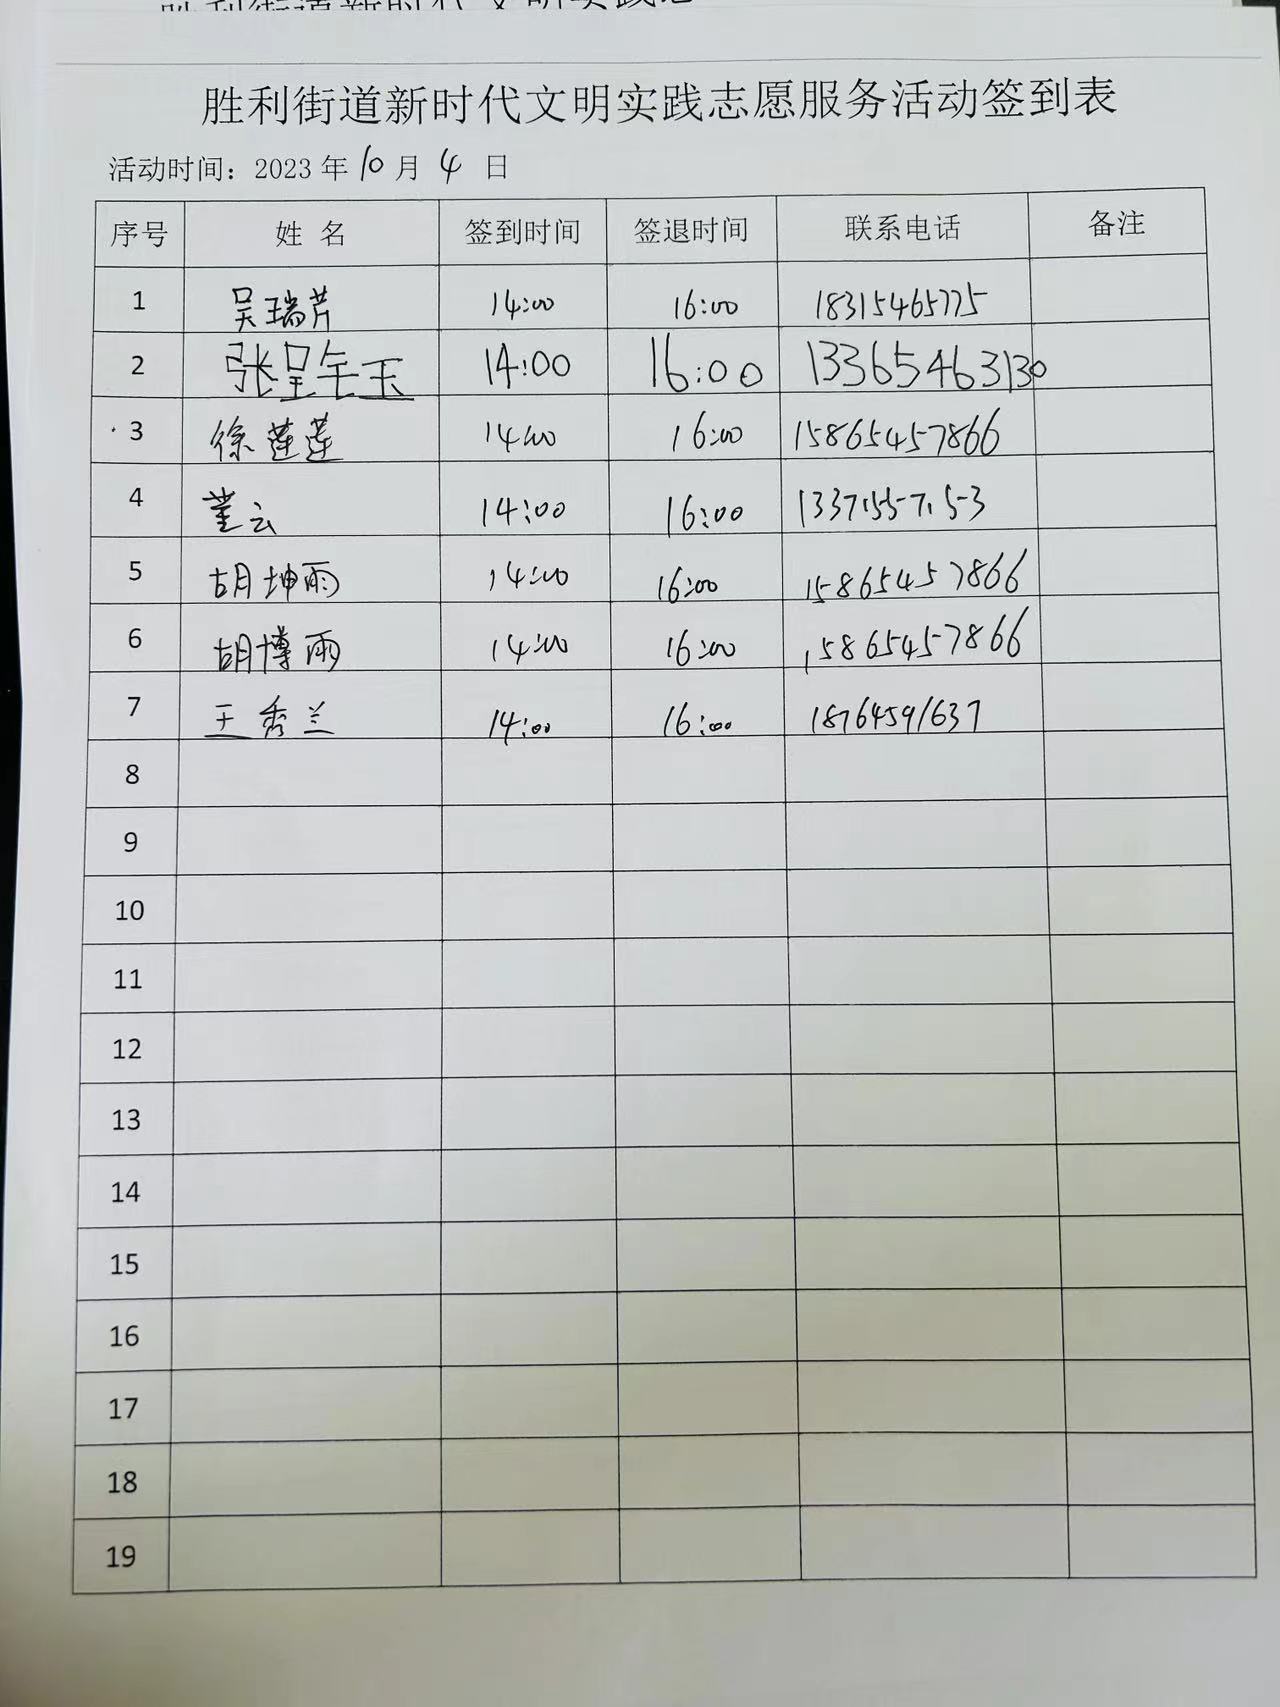 胜利街道新时代文明实践志愿服务活动签到表
活动时间：2023年10月4日
序号 姓名 签到时间 签退时间 联系电话 备注
1 吴瑞芹 14:00 16:00 18315465775
2 张呈年玉 14:00 16:00 13365463130
3 徐莲莲 14:00 16:00 15865457866
4 董云 14:00 16:00
5 胡坤雨 14:00 16:00 15865457866
6 胡博雨 14:00 16:00 15865457866
7 王秀兰 14:00 16:00 18764591637
8
9
10
11
12
13
14
15
16
17
18
19